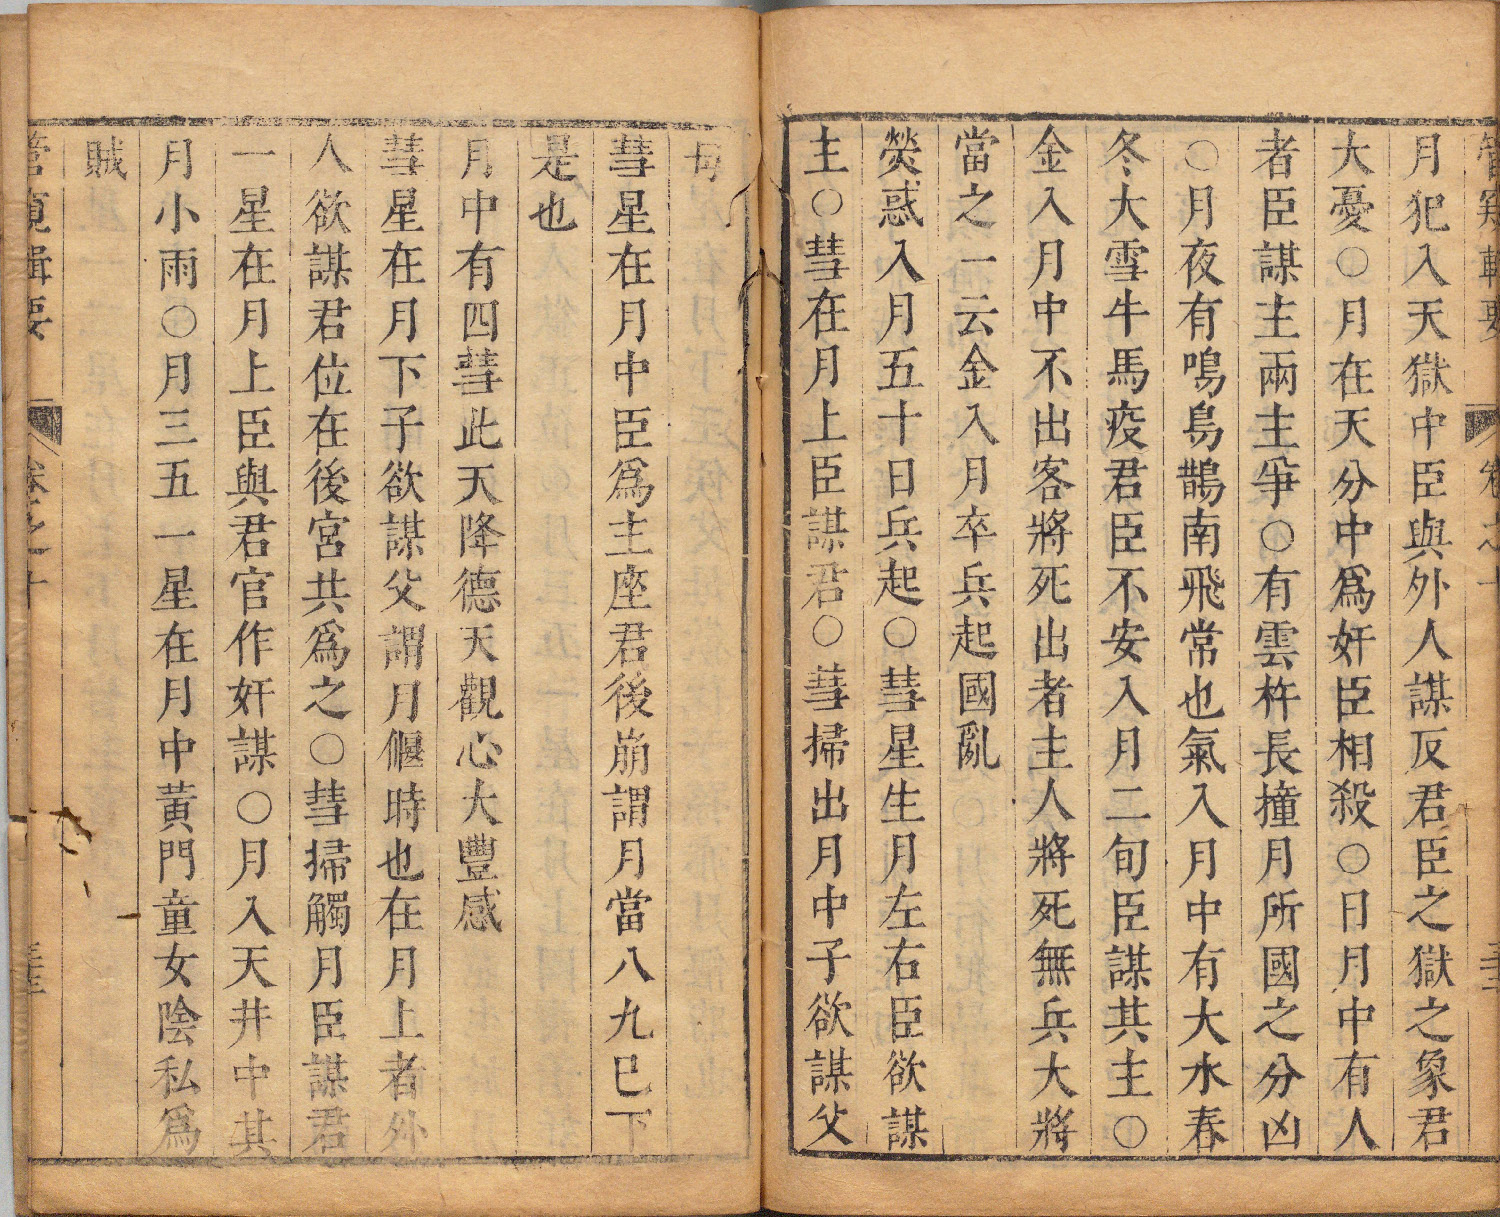 月犯入天獄中臣與外人謀反君臣之獄之象君
大憂○月在天分中爲奸臣相殺○日月中有人
者臣謀主兩主爭○有雲杵長撞月所國之分凶
○月夜有鳴鳥鵲南飛常也氣入月中有大水春
冬大雪牛馬疫君臣不安入月二旬臣謀其主○
金入月中不出客將死出者主人將死無兵大將
當之一云金入月卒兵起國亂
熒惑入月五十日兵起○彗星生月左右臣欲謀
主○彗在月上臣謀君○彗掃出月中子欲謀父
母
彗星在月中臣爲主座君後崩謂月當八九已下
是也
月中有四彗此天降德天觀心大豐感
彗星在月下子欲謀父謂月偃時也在月上者外
人欲謀君位在後宮共爲之○彗掃觸月臣謀君
一星在月上臣與君官作奸謀○月入天井中其
月小雨○月三五一星在月中黃門童女陰私爲
賊
管窺輯要
卷之十